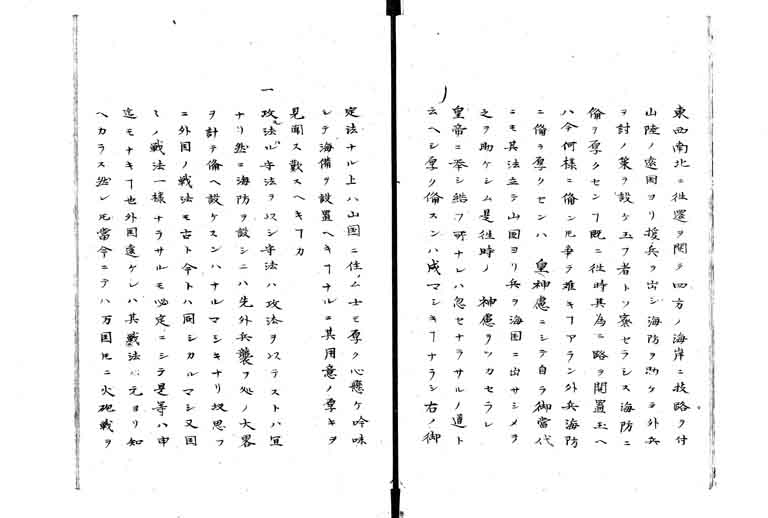 東西南北ニ往還ヲ開テ四方ノ海岸ニ枝路ヲ付
山陸ノ遠国ヨリ援兵ヲ出シ海防ヲ助ケテ外兵
ヲ討ノ策ヲ設ケ玉フ者トソ察セラレス海防ニ
備ヲ厚クセンフ既ニ往時其為ニ路ヲ開置玉ヘ
ハ今何様ニ備ンモ事テ難キフアラン外兵海防
ニ備ヲ厚クセンハ 皇神慮ニシテ自ラ御當代
ニモ其法立テ山国ヨリ兵ヲ海国ニ出サシメヲ
之ヲ助ケシム是往時ノ 神慮ヲツカセラレ
皇帝ニ奉シ結フ所ナレハ忽セナラサルノ道ト
云ヘシ厚ク備スンハ成マシキフナラン右ノ御
定法ナル上ハ山国ニ住ム士モ厚ク心懸ケ吟味
シテ海備ヲ設置ヘキフナルニ其用意ノ厚キヲ
見聞ス歎スヘキフカ
一
攻法ハ守法ヲ以シ守法ハ攻法ヲ以テストハ宜
ナリ然ニ海防ヲ設シニハ先外兵襲ヲ処ノ大畧
ヲ計テ備ヘ設ケスンハナルマシキナリ故思フ
ニ外国ノ戦法モ古ト今トハ同シカルマシ又国
々ノ戦法一様ナラサルモ必定ニシテ是等ハ申
迄モナキフ也外国遠ケレハ其戦法ハ元ヨリ知
ヘカラス然レ𪜈當今ニテハ万国𪜈ニ火砲戦ヲ